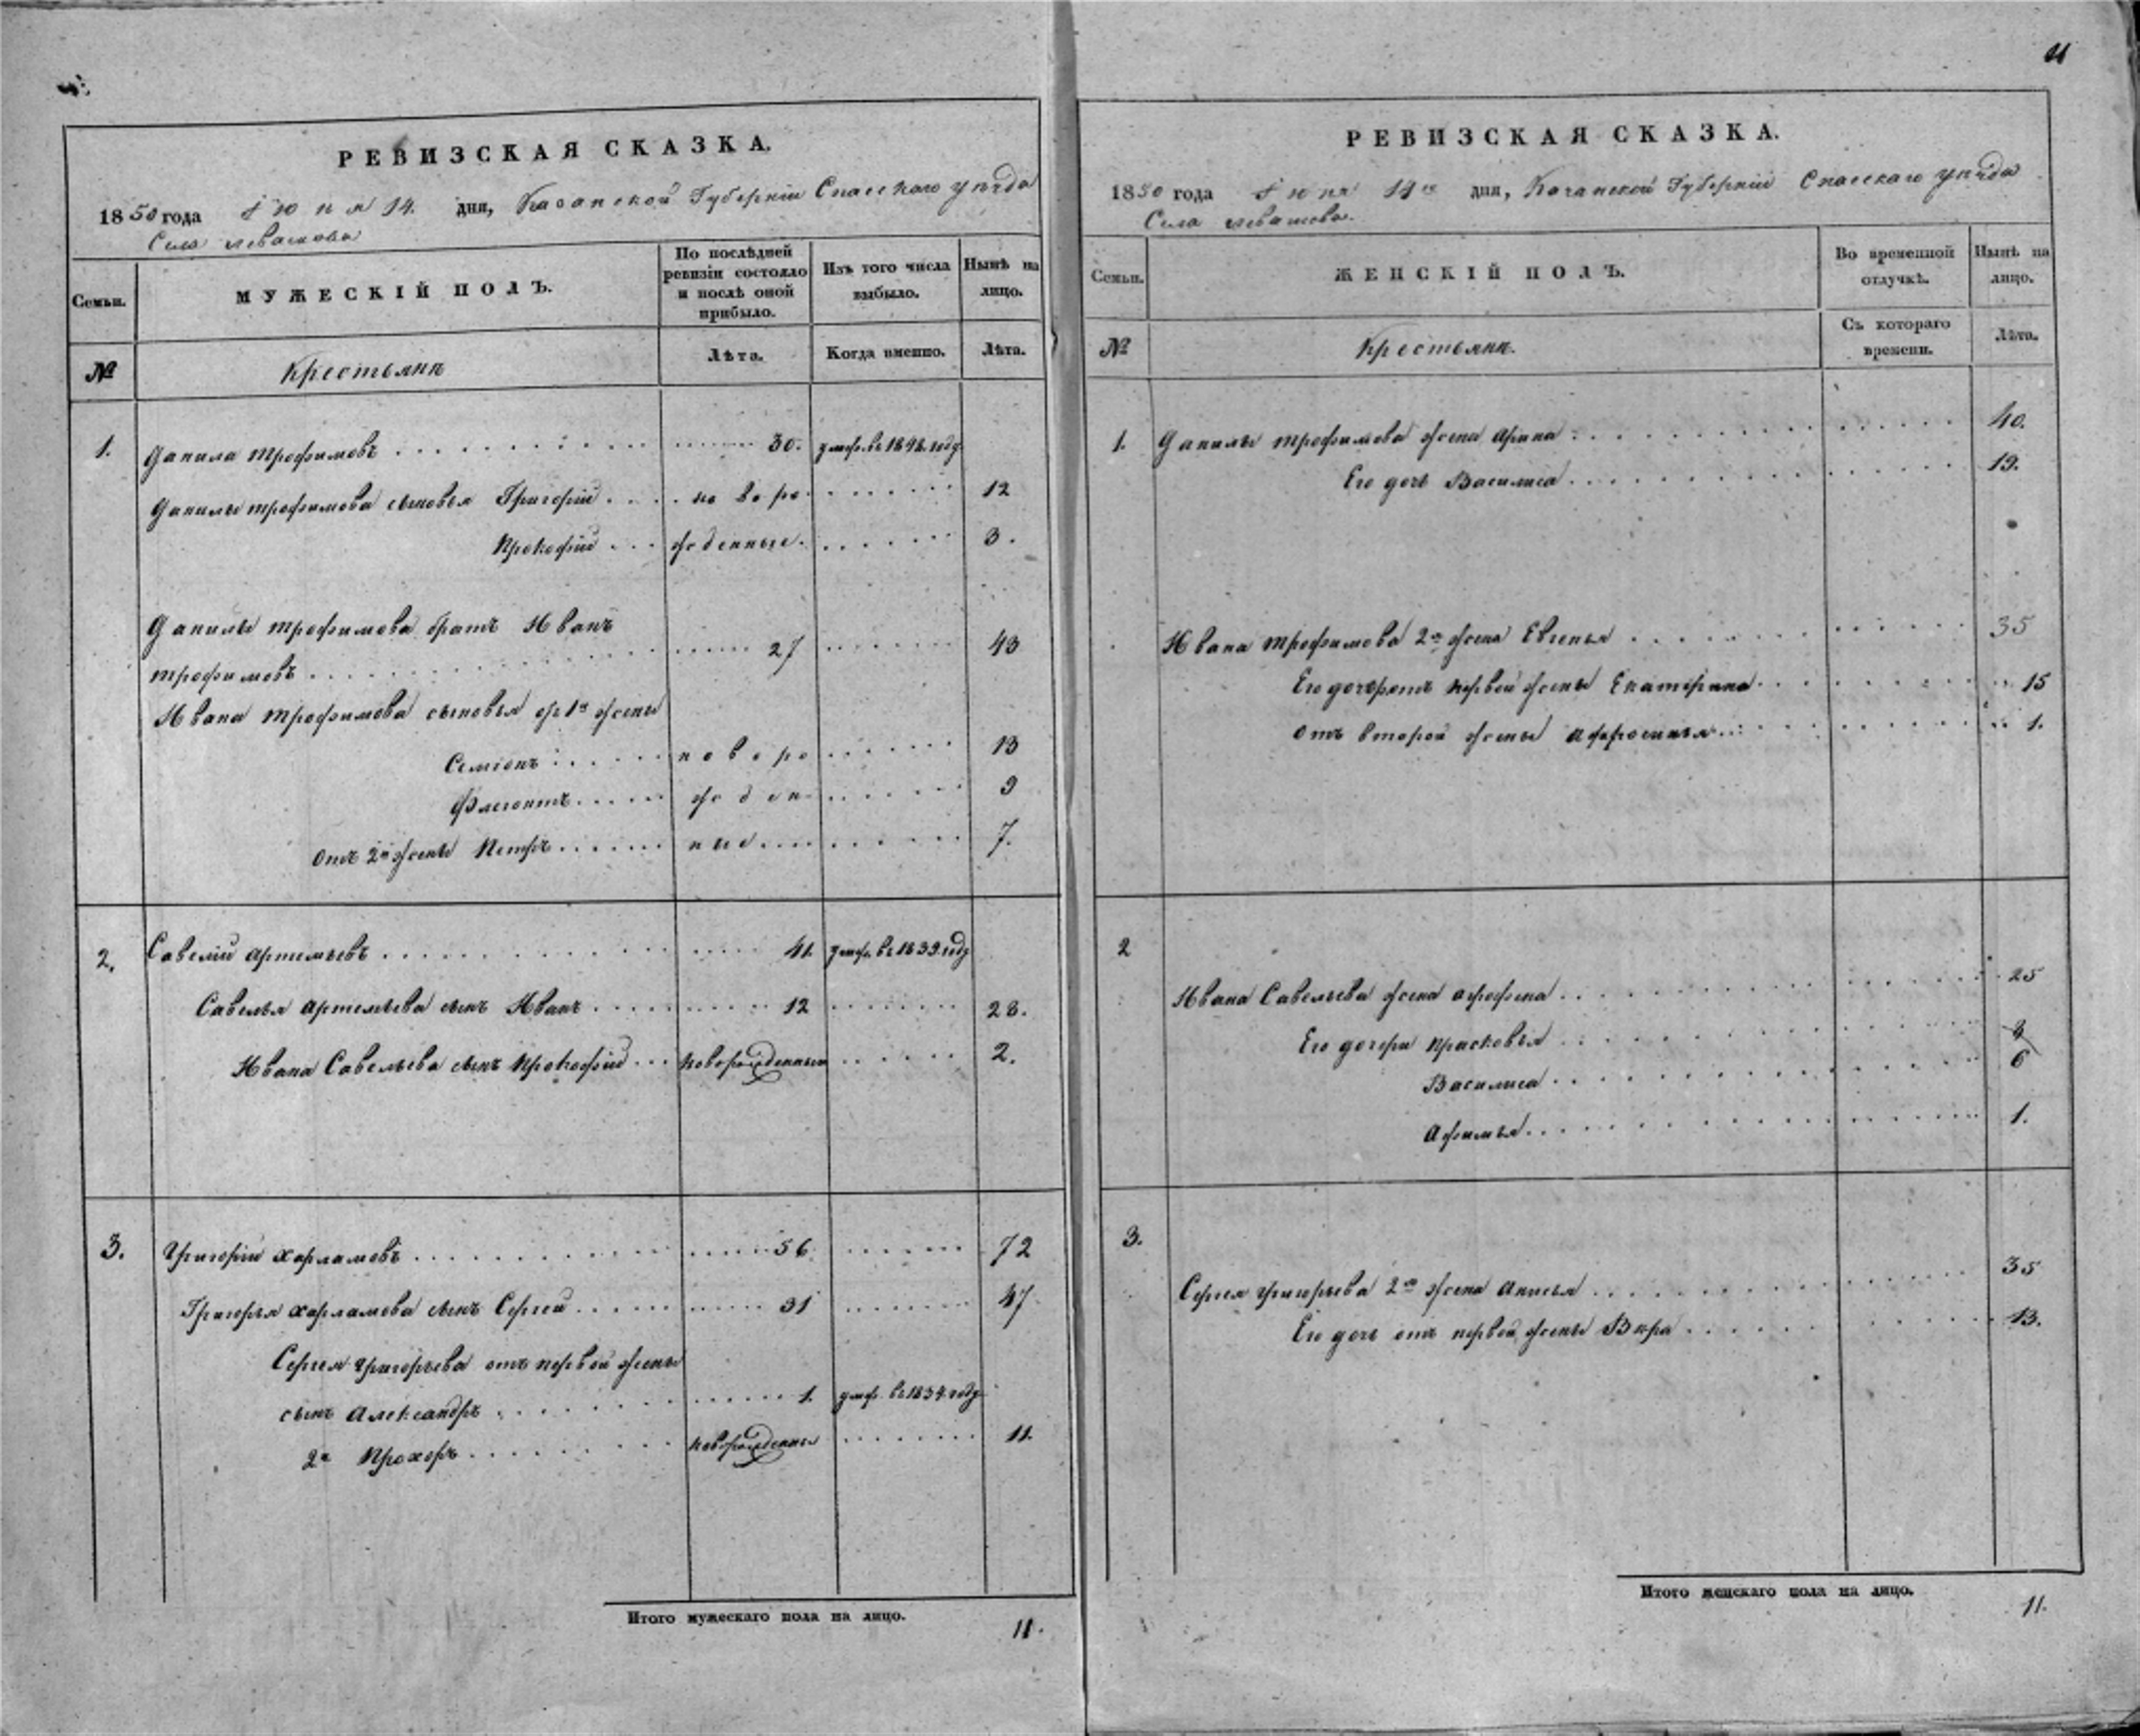 РЕВИЗСКАЯ СКАЗКА.
1850 года Іюня 14. дня, Казанской Губерніи Спасскаго уѣзда
Села Левашова
Семьи.
МУЖЕСКІЙ ПОЛЪ.
По послѣдней ревизіи состояло и послѣ оной прибыло.
Изъ того числа выбыло.
Нынѣ на лицо.
№
Крестьянѣ
Лѣта.
Когда именно.
Лѣта.
1. Данила Трофимовъ 30. умер. въ 1848. году
Данилы Трофимова сыновья Григорій ново ро 12
Прокофій жденные. 3.
Данилы Трофимова братъ Иванъ
Трофимовъ 27 43
Ивана Трофимова сыновья от 1й жены
Семіонъ новоро 13
Флегонтъ жден 9
Отъ 2й жены Петръ ные 7.
2. Савелій Артемьевъ 41. умер. въ 1839. году
Савелья Артемьева сынъ Иванъ 12 28.
Ивана Савельева сынъ Прокофій новорожденный 2.
3. Григорій Харламовъ 56 72
Григорья Харламова сынъ Сергей 31 47
Сергея Григорьева отъ первой жены
сынъ Александръ 1. умер. въ 1834. году
2й Прохоръ новорожденный 11.
Итого мужескаго пола на лицо. 11.
РЕВИЗСКАЯ СКАЗКА.
1850 года Іюня 14го дня, Казанской Губерніи Спасскаго уѣзда
Села Левашова.
Семьи.
ЖЕНСКІЙ ПОЛЪ.
Во временной отлучкѣ.
Нынѣ на лицо.
№
Крестьянѣ.
Съ котораго времени.
Лѣта.
1. Данилы Трофимова жена Арина 40.
Его дочь Василиса 19.
Ивана Трофимова 2я жена Евгенья 35
Его дочь отъ первой жены Екатерина 15
отъ второй жены Афросинья 1.
2
Ивана Савельева жена Афросена 25
Его дочери Прасковья 8
Василиса 6
Афимья 1.
3.
Сергея Григорьева 2я жена Анисья 35
Его дочь отъ первой жены Вѣра 13.
Итого женскаго пола на лицо. 11.